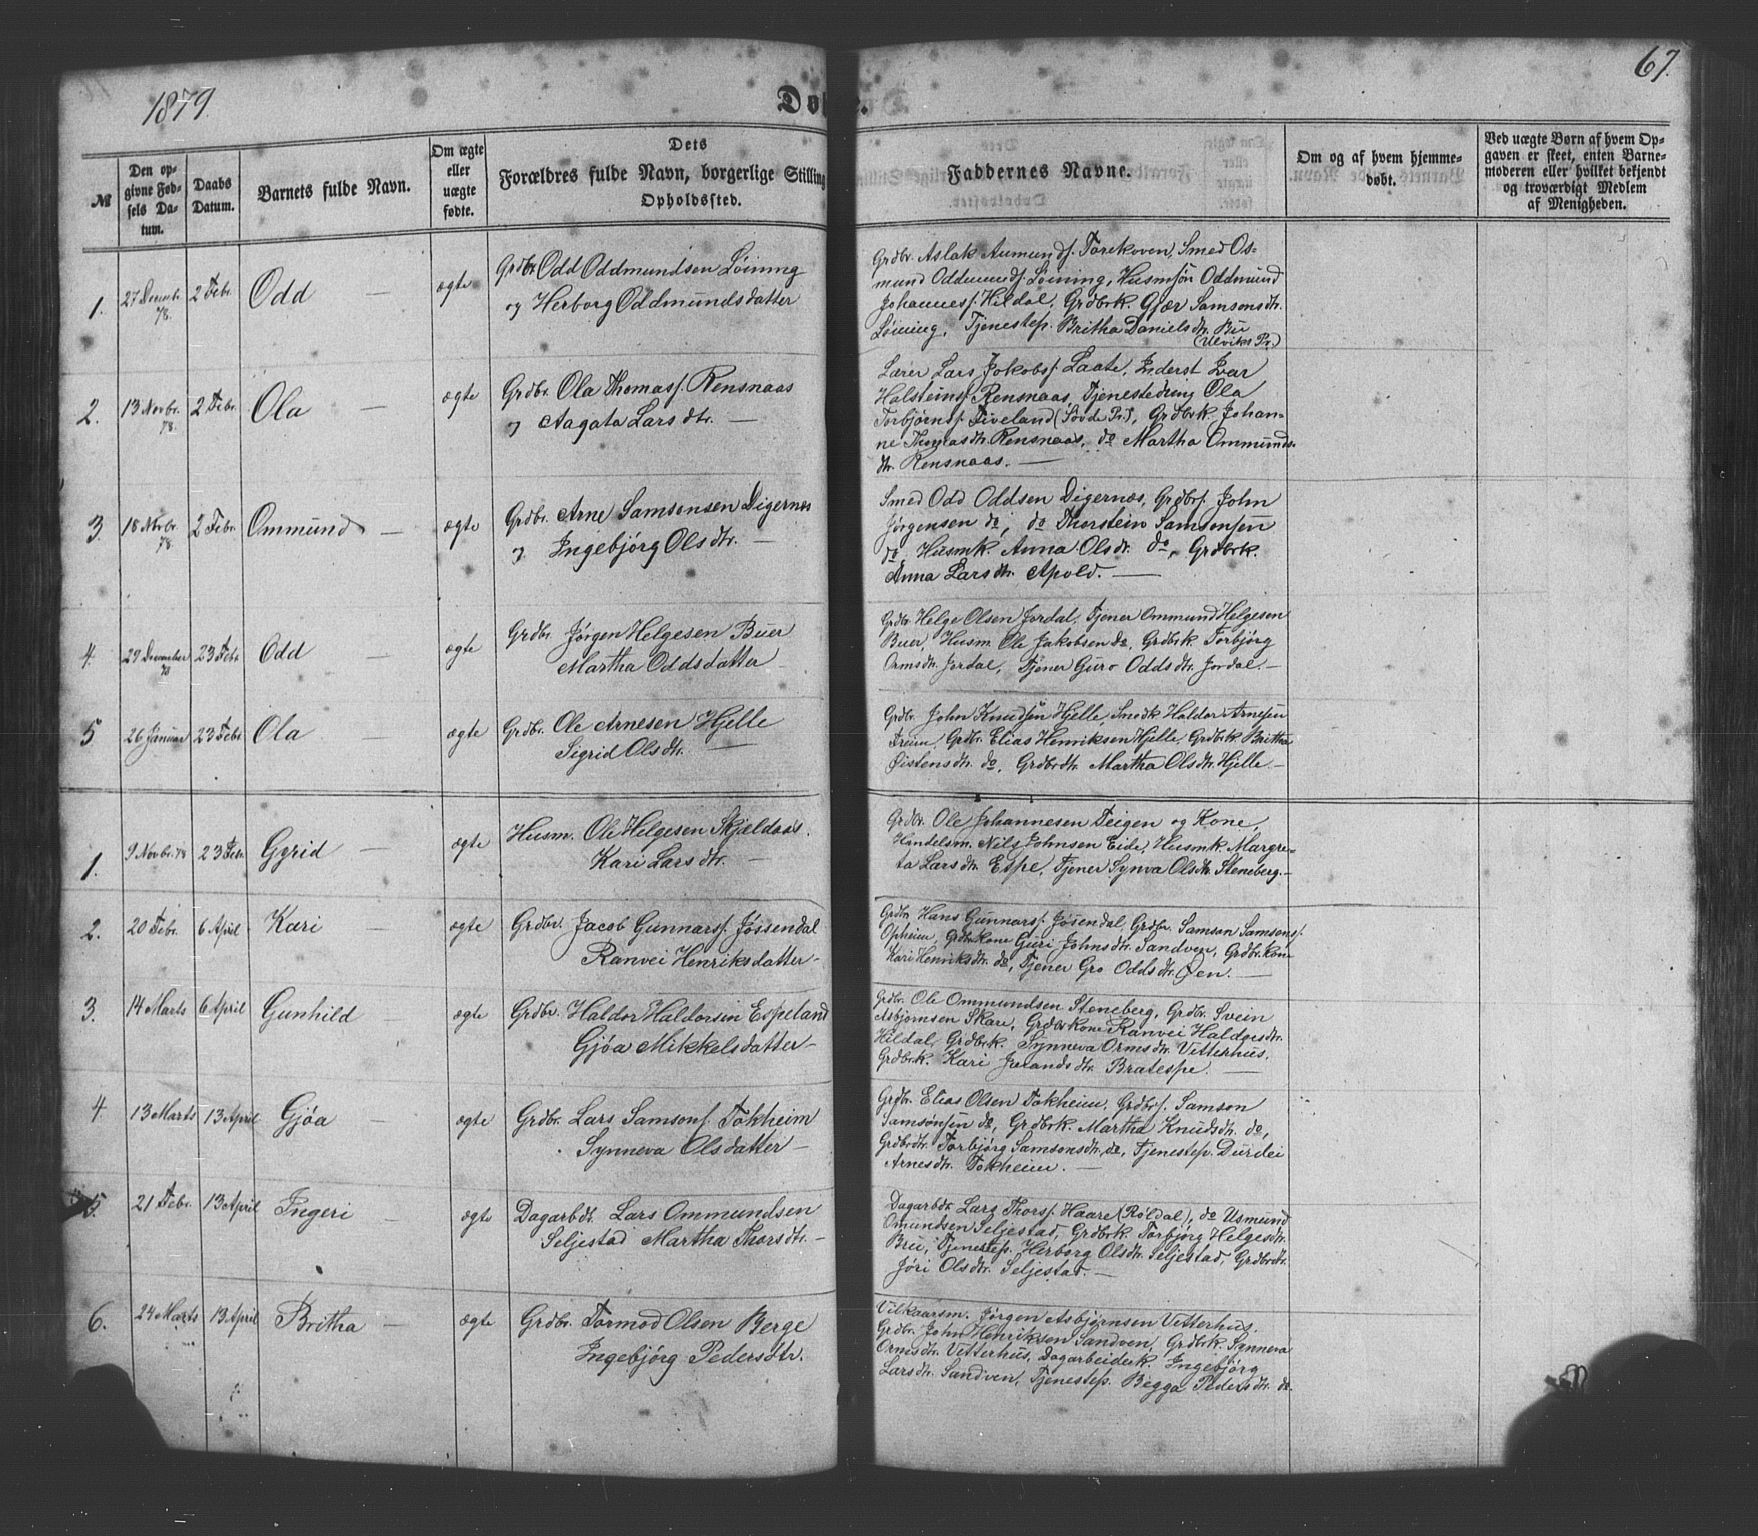 1879.
67.
Døbte.
№
Den opgivne Fødsels Datum.
Daabs Datum.
Barnets fulde Navn.
Om ægte eller uægte fødte.
Dets Forældres fulde Navn, borgerlige Stilling Opholdssted.
Faddernes Navne.
Om og af hvem hjemmedøbt.
Ved uægte Børn af hvem Opgaven er skeet, enten Barnemoderen eller hvilket bekjendt og troværdigt Medlem af Menigheden.
1. 27 Decembr. 78. 2 Febr. Odd — ægte
Grdbr. Odd Oddmundsen Løining
og Herborg Oddmundsdatter
Grdbr. Aslak Aumunds. Torekoven, Smed Os-
mund Oddmunds. Løining, Husmsøn Oddmund
Johanness. Hildal, Grdbrk. Gjær Samsonsdtr.
Løining, Tjenestep. Britha Danielsdtr. Bu
(Ulviks Pr.)
2. 13 Novbr. 78. 2 Febr. Ola — ægte
Grdbr. Ola Thomass. Rensnaas
og Aagata Larsdtr. —
Lærer Lars Jakobs. Laate, Inderst Ivar
Halsteins. Rensnaas, Tjenestedreng Ola
Torbjørns. Fiveland (Søvde Pr.), Grdbrk. Johan-
ne Thomasdtr. Rensnaas, do Martha Ommunds-
dtr. Rensnaas. —
3. 18 Novbr. 78. 2 Febr. Ommund — ægte
Grdbr. Arne Samsonsen Digernes
og Ingebjørg Olsdtr. —
Smed Odd Oddsen Digernæs, Grdbrs. John
Jørgensen do, do Thorstein Samsonsen
do, Husmk. Anna Olsdtr. do, Grdbrk.
Anna Larsdtr. Apold. —
4. 29 December 78 23 Febr. Odd — ægte
Grdbr. Jørgen Helgesen Buer
Martha Oddsdatter
Grdbr. Helge Olsen Jordal, Tjener Ommund Helgesen
Buer, Husm. Ole Jakobsen do, Grdbrk. Torbjørg
Ormsdtr. Jordal, Tjener Guro Oddsdtr. Jordal. —
5 26 Januar 23 Febr. Ola — ægte
Grdbr. Ole Arnesen Hjelle
Sigrid Olsdtr. —
Grdbr. John Knudsen Hjelle, Smedk Haldor Arnesen
Freim, Grdbr. Elias Henriksen Hjelle, Grdbrk. Britha
Øistensdtr. do, Grdbrdtr. Martha Olsdtr. Hjelle —
1. 9 Novbr. 78 23 Febr. Gyrid — ægte
Husm. Ole Helgesen Skjeldaas.
Kari Larsdtr. —
Grdbr. Ole Johannesen Teigen og Kone,
Handelsm. Nils Johnsen Eide, Husmk. Margre-
ta Larsdtr. Espe, Tjener Synva Olsdtr. Steneberg. —
2. 20 Febr. 6 April Kari — ægte
Grdbr. Jacob Gunnars. Jøssendal
Ranvei Henriksdatter —
Grdbr. Hans Gunnars. Jøsendal, Grdbr. Samson Samsons.
Opheim, Grdbrkone Guri Johnsdtr. Sandven, Grdbr.kone
Kari Henriksdtr. do, Tjener Gro Oddsdtr. Øen. —
3. 14 Marts 6 April Gunhild ægte
Grdbr. Haldor Haldorsen Espeland
Gjøa Mikkelsdatter —
Grdbr. Ole Ommundsen Steneberg, Grdbr. Svein
Asbjørnsen Skare, Grdbrkone Ranvei Haldgesdtr.
Hildal, Grdbrk. Synneva Ormsdtr. Vitterhus.
Grdbrk. Kari Joransdtr. Bratespe. —
4 13 Marts 13 April Gjøa — ægte
Grdbr. Lars Samsons. Tokheim
Synneva Olsdatter —
Grdbr. Elias Olsen Tokheim, Grdbrs. Samson
Samsonsen do, Grdbrk. Martha Knudsdtr. do,
Grdbrdtr. Torbjørg Samsonsdtr. do, Tjenestep. Durdei
Arnesdtr. Tokheim. —
5. 21 Febr. 13 April Ingeri — ægte
Dagarbdr. Lars Ommundsen
Seljestad Martha Thorsdtr. —
Dagarbdr. Lars Thors. Haare (Røldal), do Osmund
Omundsen Seljestad, Grdbrk. Torbjørg Helgesdtr.
Bru, Tjenestep. Herborg Olsdtr. Seljestad, Grdbrdtr.
Jøri Olsdtr. Seljestad. —
6. 24 Marts 13 April Britha — ægte
Grdbr. Tormod Olsen Berge
Ingebjørg Pedersdtr.
Vilkaarsm. Jørgen Asbjørnsen Vitterhus.
Grdbr. John Henriksen Sandven, Grdbrk. Synneva
Ormsdtr. Vitterhus, Dagarbeiderk. Ingebjørg
Larsdtr. Sandven, Tjenestep. Begga Pedersdtr. do.